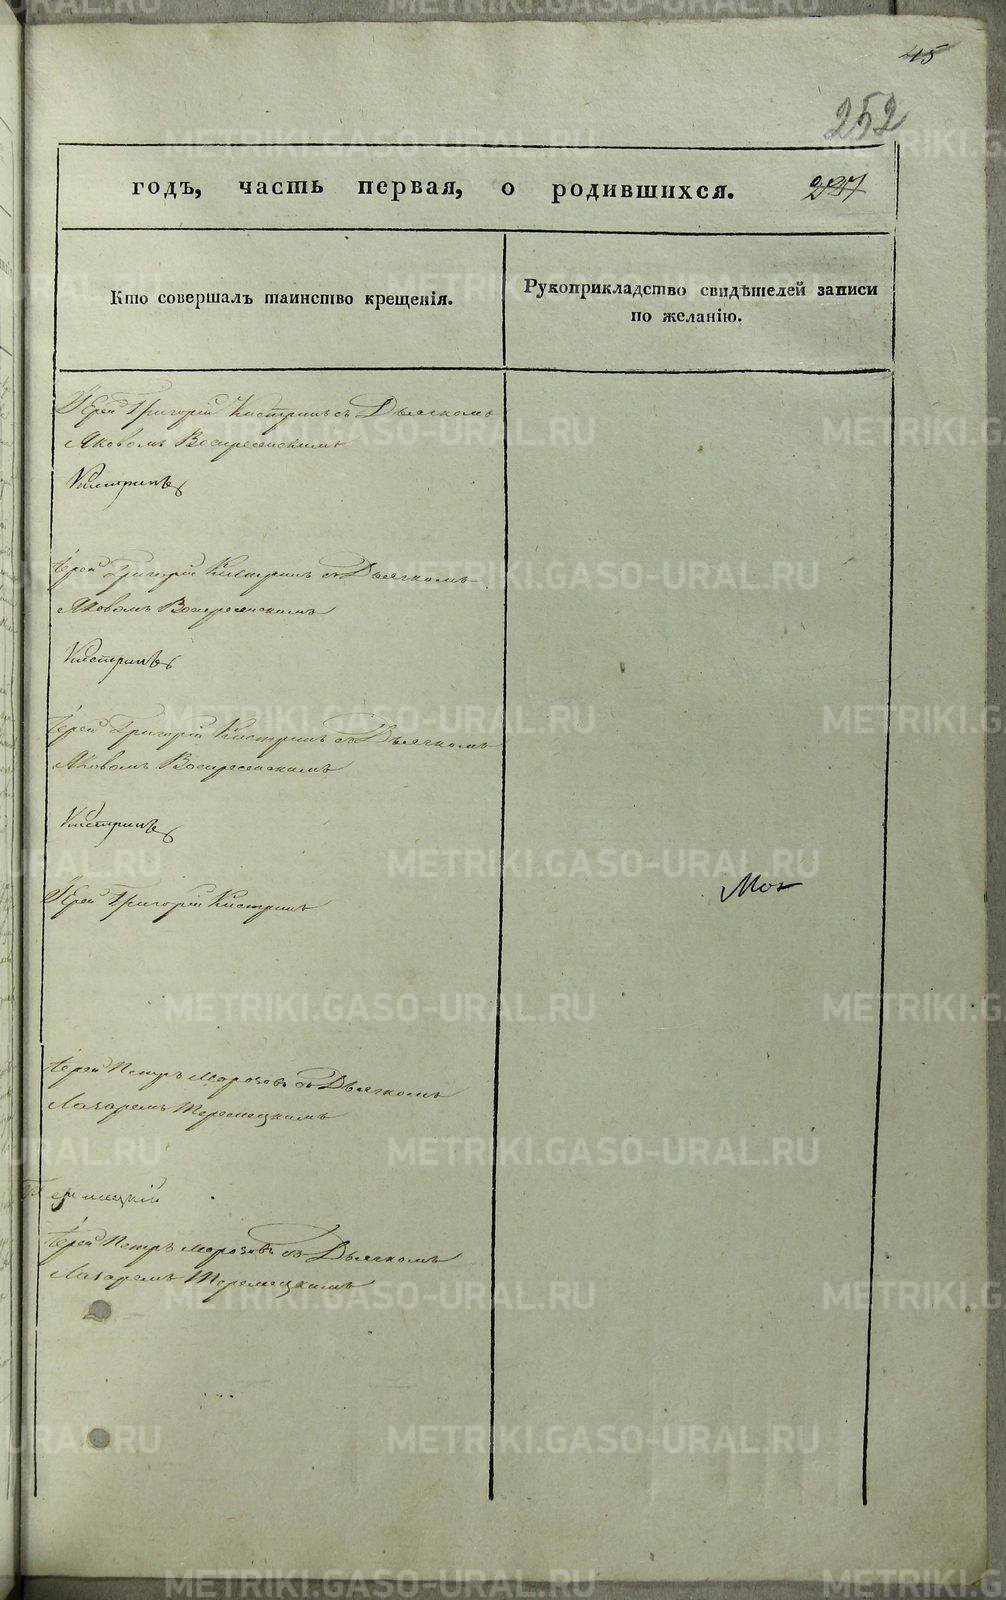 45
252
годъ, часть первая, о родившихся.
Кто совершалъ таинство крещенія.
Рукоприкладство свидѣтелей записи
по желанію.
Іерей Григорій Кистринъ съ Дьячкомъ
Яковомъ Воскресенскимъ
Кистринъ
Іерей Григорій Кистринъ съ Дьячкомъ
Яковомъ Воскресенскимъ
Кистринъ
Іерей Григорій Кистринъ съ Дьячкомъ
Яковомъ Воскресенскимъ
Кистринъ
Іерей Григорій Кистринъ
Іерей Петръ Морозовъ съ Дьячкомъ
Лазаремъ Теремецкимъ
Іерей Петръ Морозовъ съ Дьячкомъ
Лазаремъ Теремецкимъ
METRIKI.GASO-URAL.RU